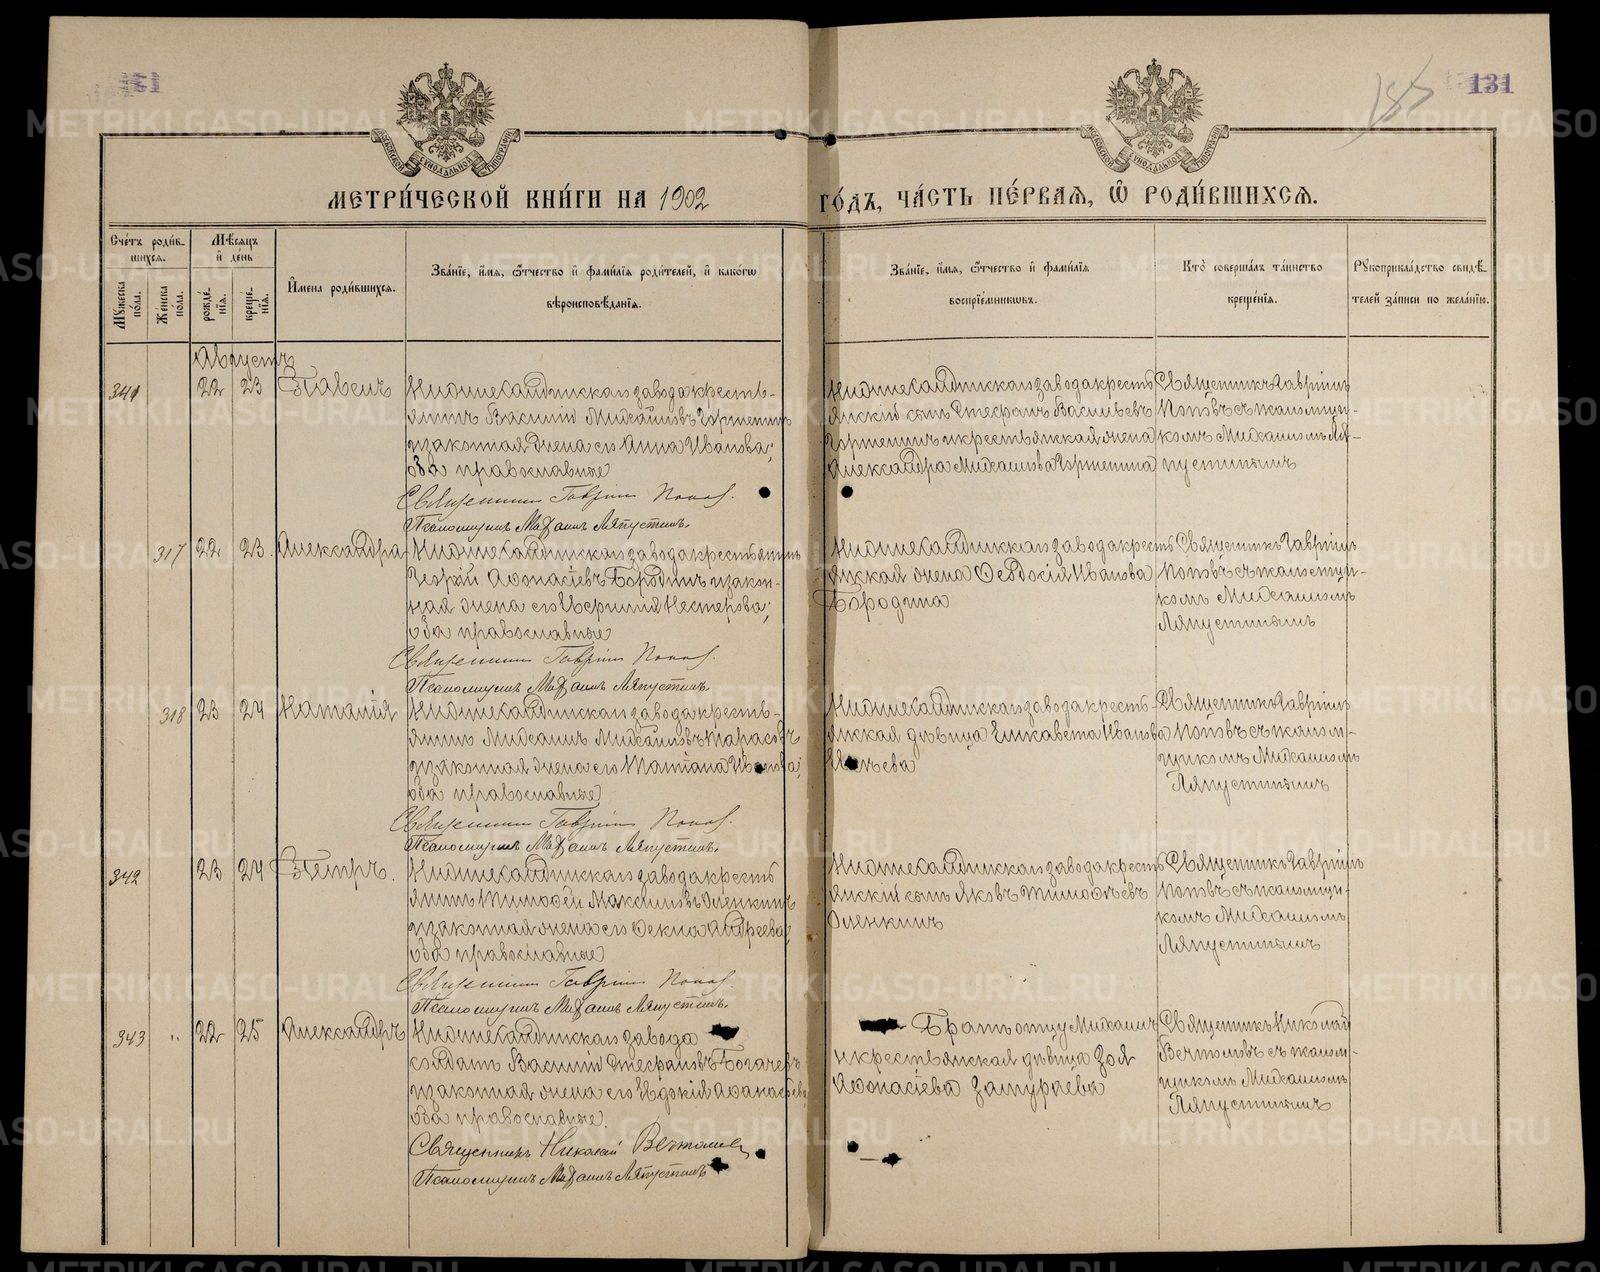 131
185
МЕТРИ́ЧЕСКОЙ КНИ́ГИ НА 1902 ГО́ДЪ, ЧА́СТЬ ПЕ́РВАЯ, Ѿ РОДИ́ВШИХСЯ.
Сче́тъ роди́вшихся.
Му́жеска по́ла.
Же́нска по́ла.
Мѣ́сяцъ и де́нь
рожде́нїя.
креще́нїя.
И́мена роди́вшихся.
Зва́нїе, и́мя, ѻ́тчество и фами́лїя роди́телей, и како́гѡ
вѣроисповѣ́данїя.
Зва́нїе, и́мя, ѻ́тчество и фами́лїя
воспрїе́мникѡвъ.
Кто̀ соверша́лъ та́инство
креще́нїя.
Рꙋкоприкла́дство свидѣ́-
телей за́писи по жела́нїю.
Августъ
341 22 23 Павелъ
Нижнесалдинскаго завода кресть-
янинъ Василій Михайловъ
и законная жена его Анна Иванова;
оба православные
Священникъ Гавріилъ Поповъ.
Псаломщикъ Михаилъ Ляпустинъ.
Нижнесалдинскаго завода кресть-
янскій сынъ Стефанъ Васильевъ
и крестьянская жена
Александра Михаилова
Священникъ Гавріилъ
Поповъ съ псаломщи-
комъ Михаиломъ Ля-
пустинымъ
317 22 23 Александра
Нижнесалдинскаго завода крестьянинъ
Георгій Аѳонасіевъ Бородинъ и закон-
ная жена его Нестерова;
оба православные
Священникъ Гавріилъ Поповъ.
Псаломщикъ Михаилъ Ляпустинъ.
Нижнесалдинскаго завода кресть-
янская жена Ѳеодосія Иванова
Бородина
Священникъ Гавріилъ
Поповъ съ псаломщи-
комъ Михаиломъ
Ляпустинымъ
318 23 24 Наталія
Нижнесалдинскаго завода кресть-
янинъ Михаилъ Михайловъ Тарасовъ
и законная жена его Татіана Иванова;
оба православные
Священникъ Гавріилъ Поповъ.
Псаломщикъ Михаилъ Ляпустинъ.
Нижнесалдинскаго завода кресть-
янская дѣвица Елисавета Иванова
Священникъ Гавріилъ
Поповъ съ псалом-
щикомъ Михаиломъ
Ляпустинымъ
342 23 24 Петръ.
Нижнесалдинскаго завода кресть-
янинъ Тимоѳей Максимовъ Оленкинъ
и законная жена его Ѳекла Андреева;
оба православные
Священникъ Гавріилъ Поповъ.
Псаломщикъ Михаилъ Ляпустинъ.
Нижнесалдинскаго завода кресть-
янскій сынъ Яковъ Тимоѳѣевъ
Оленкинъ
Священникъ Гавріилъ
Поповъ съ псаломщи-
комъ Михаиломъ
Ляпустинымъ
343 " 22 25 Александръ
Нижнесалдинскаго завода
солдатъ Василій Стефановъ Богачевъ
и законная жена его Аѳанасьева;
оба православные.
Священникъ Николай
Псаломщикъ Михаилъ Ляпустинъ
Братъ отцу Михаилъ
и крестьянская дѣвица Зоя
Аѳонасіева
Священникъ Николай
съ псалом-
щикомъ Михаиломъ
Ляпустинымъ
METRIKI.GASO-URAL.RU